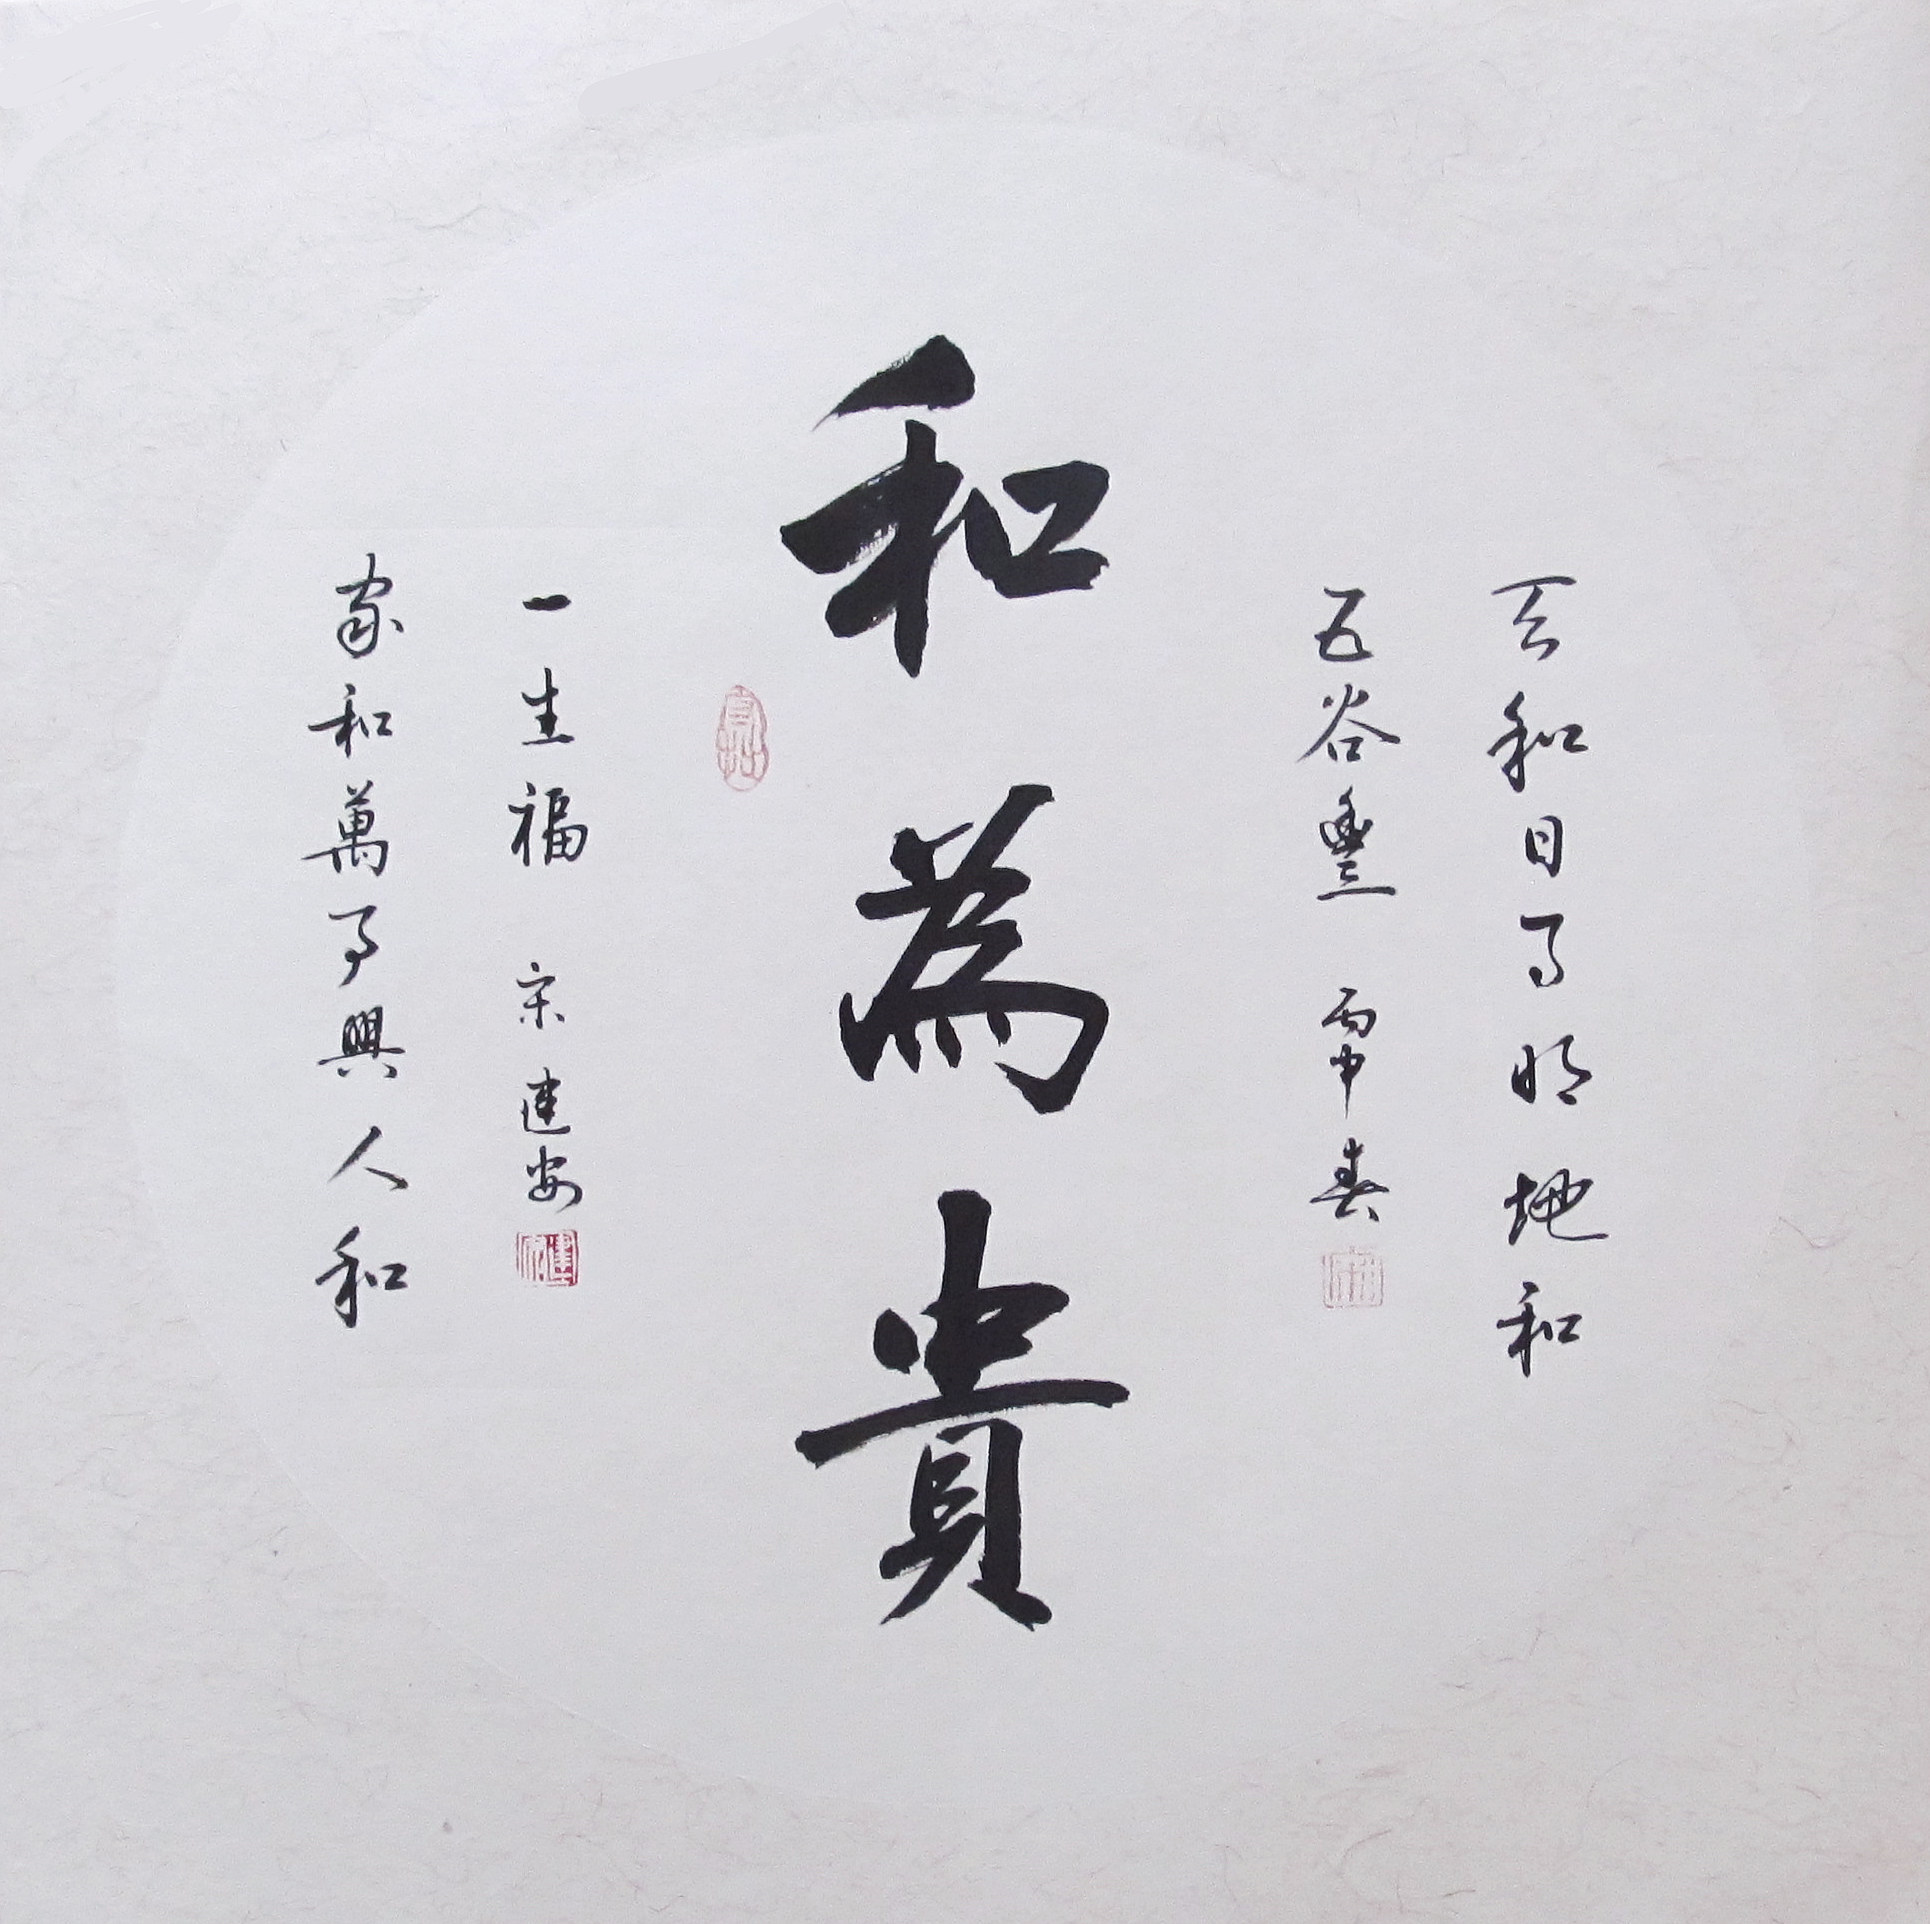 天和日月明地和
五谷豐 丙申春
和為貴
家和萬事興人和
一生福 宋建安